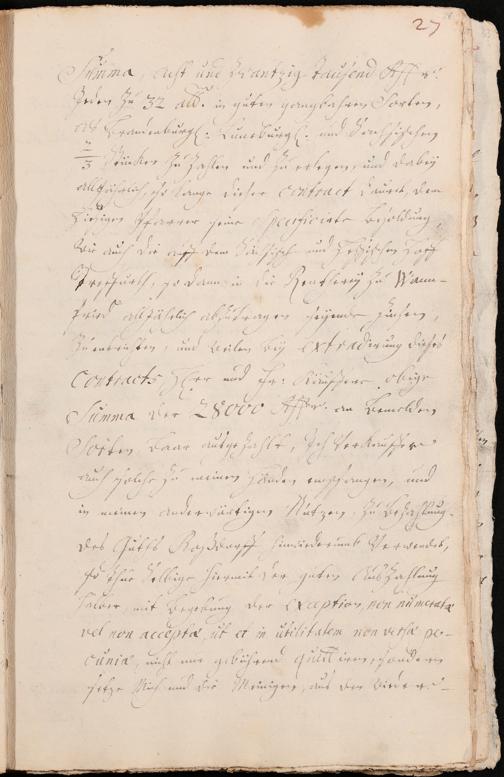 27
Summa, acht und zwantzig Tausend Rthlr.
Jeden zu 32 alb. in guten gangbahren Sorten,
als Brandenburg. Lüneburg. und Sächsischen
2/3 Stücken zu zahlen und zu erlegen, und dabey
alljährlich, so lange dieser Contract dauert, dem
hiesigen Pfarrer seine specificirte besoldung,
wie auch die auff dem Sächsisch- und Hessischen Hoff
so dann in die Rentherey zu Wann-
fried alljährlich abzutragen seyende zinsen,
zu entrichten, und weilen bey extradirung dieses
Contracts Herr und Fr. Käuffere obige
Summa der 28000 Rthlr. an bemelden
Sorten baar ausgezahlt, Ich Verkäuffer
auch solche zu meinen Händen empfangen, und
in meinen anderwärtigen Nutzen, zu bezahlung
des Guths hinwiederumb verwendet,
so thue selbige hiermit der guten Auszahlung
halber, mit begebung der exception non numeratæ
vel non acceptæ, ut et in utilitatem non versæ pe-
cuniæ, nicht nur gebührend quittiren, sondern
setze Mich und die Meinigen, aus der